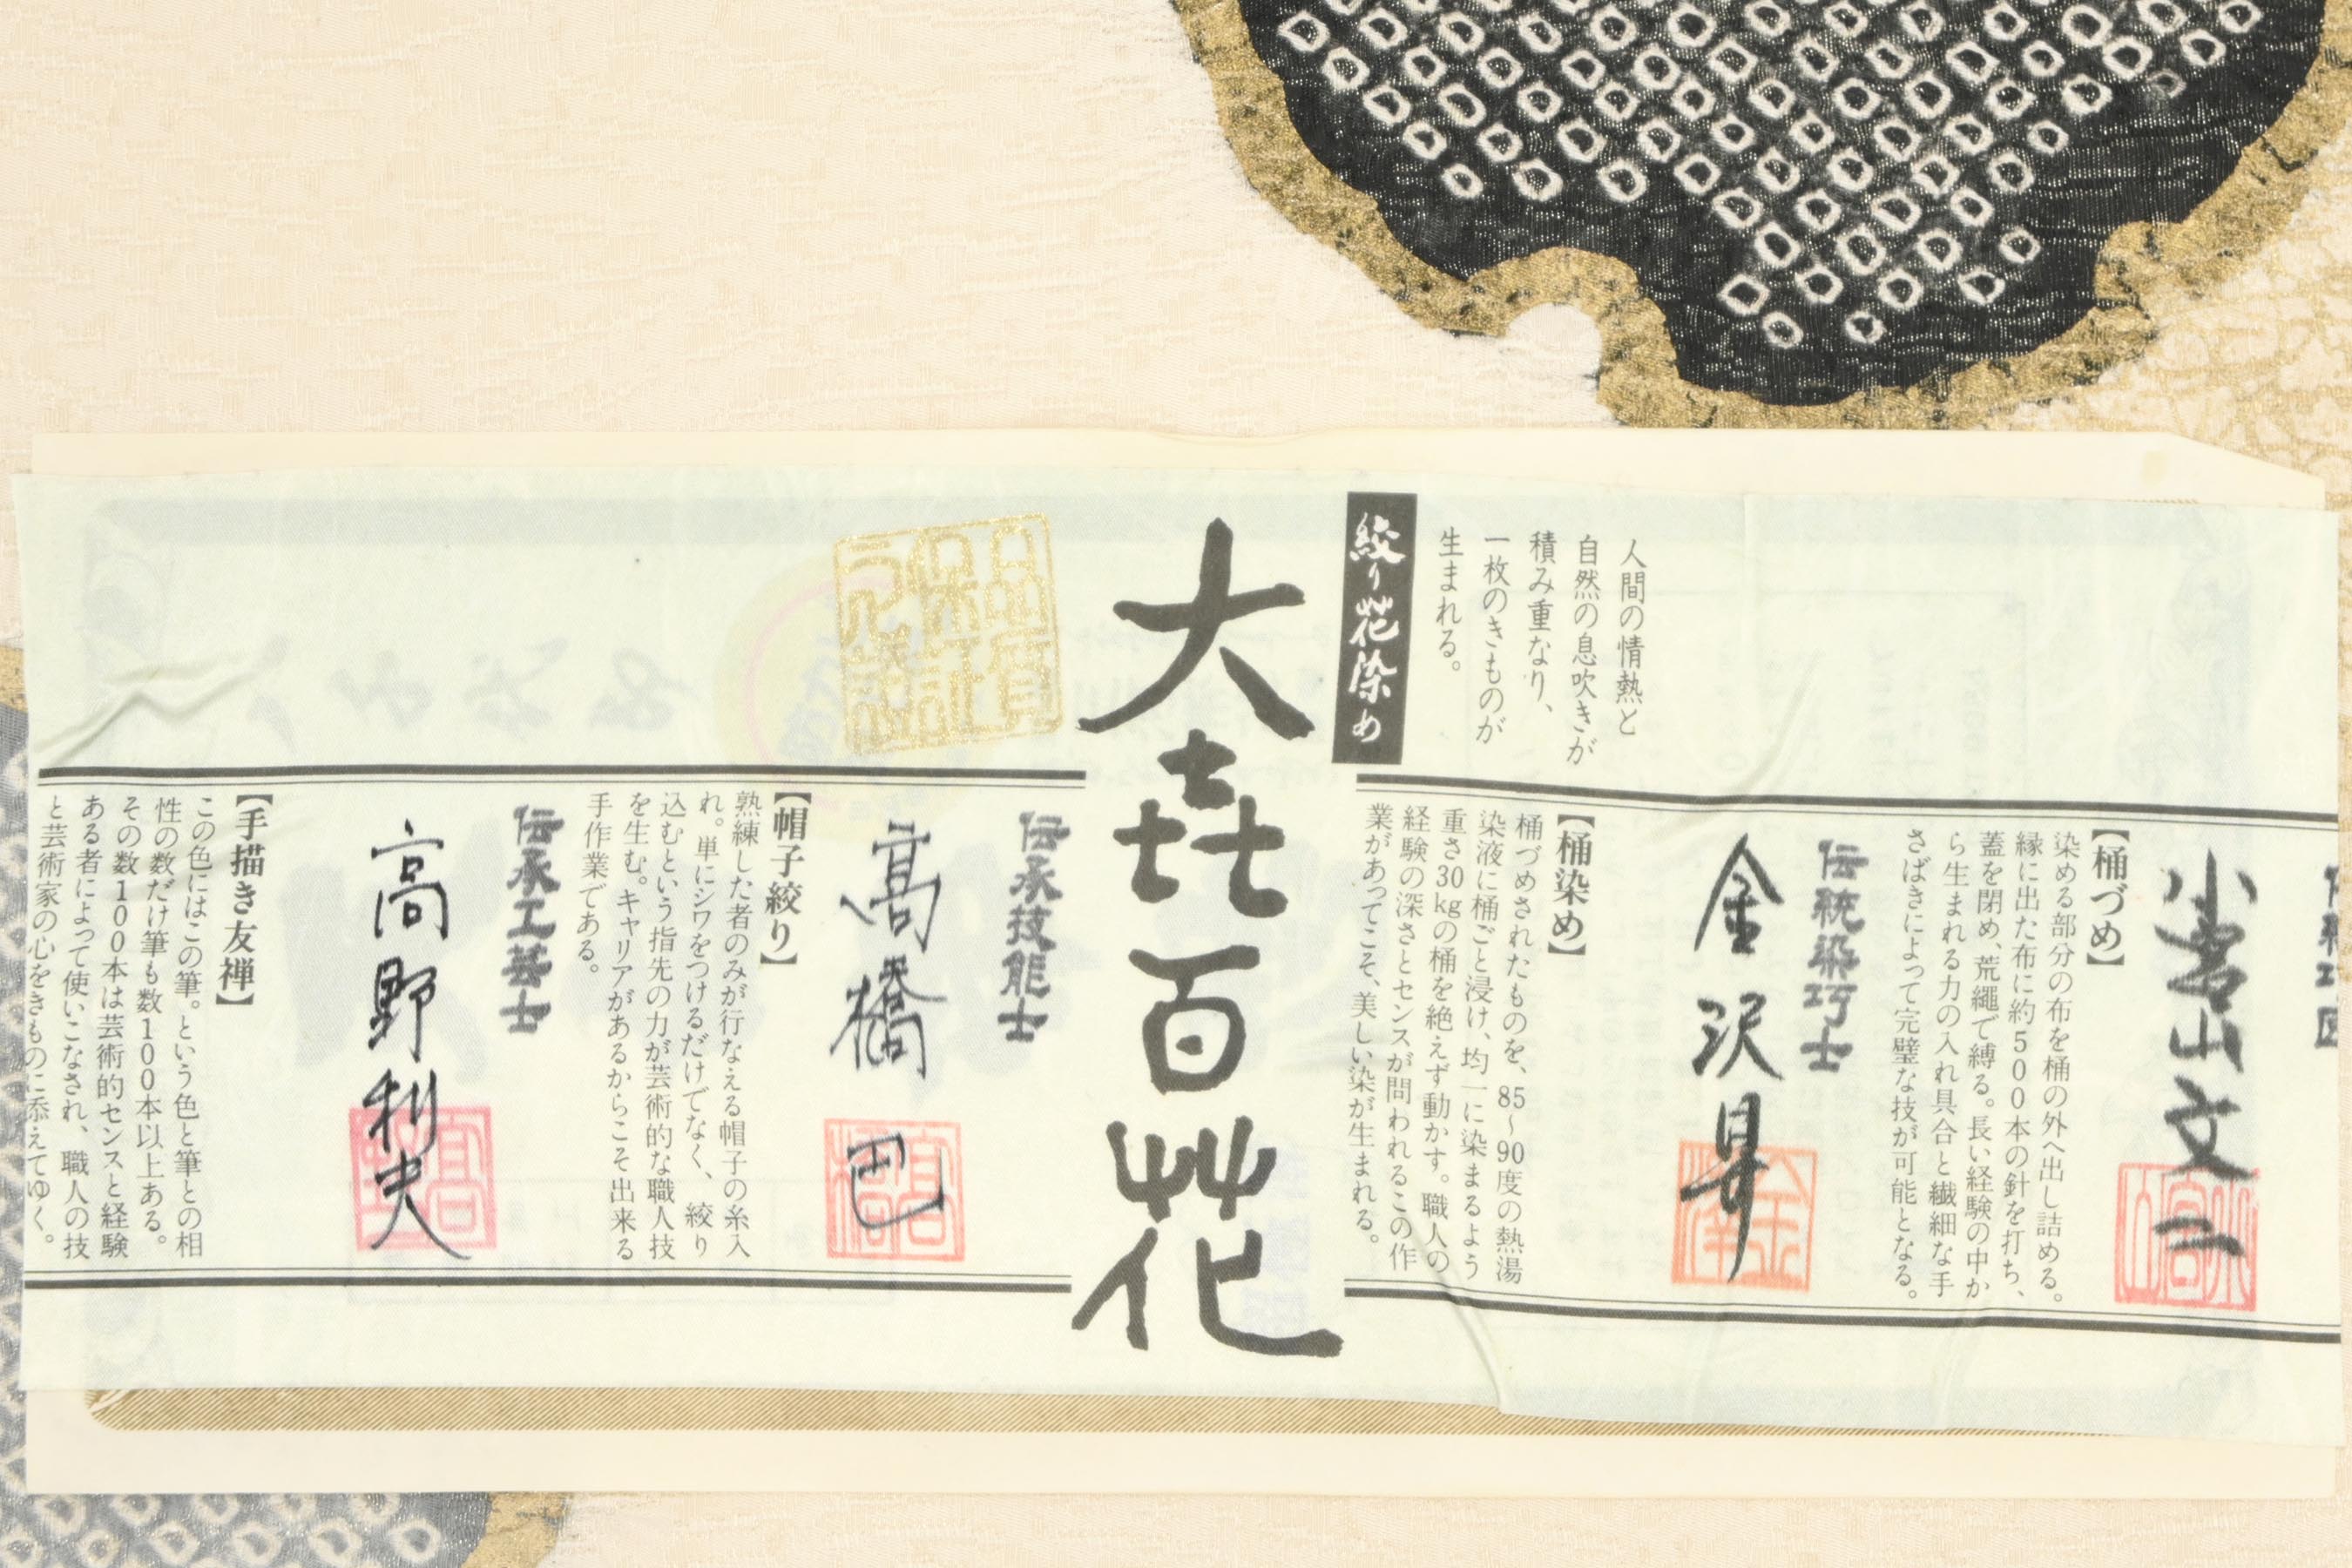 人間の情熱と
自然の息吹きが
積み重なり、
一枚のきものが
生まれる。
絞り花染め
大㐂百花
品質
保証
之証
小宮山文二
【桶づめ】
染める部分の布を桶の外へ出し詰める。
縁に出た布に約500本の針を打ち、
蓋を閉め、荒縄で縛る。長い経験の中か
ら生まれる力の入れ具合と繊細な手
さばきによって完璧な技が可能となる。
伝統染巧士
金沢昇
【桶染め】
桶づめされたものを、85～90度の熱湯
染液に桶ごと浸け、均一に染まるよう
重さ30kgの桶を絶えず動かす。職人の
経験の深さとセンスが問われるこの作
業があってこそ、美しい染が生まれる。
伝承技能士
髙橋巴
【帽子絞り】
熟練した者のみが行なえる帽子の糸入
れ。単にシワをつけるだけでなく、絞り
込むという指先の力が芸術的な職人技
を生む。キャリアがあるからこそ出来る
手作業である。
伝承工芸士
高野利夫
【手描き友禅】
この色にはこの筆。という色と筆との相
性の数だけ筆も数100本以上ある。
その数100本は芸術的センスと経験
ある者によって使いこなされ、職人の技
と芸術家の心をきものに添えてゆく。